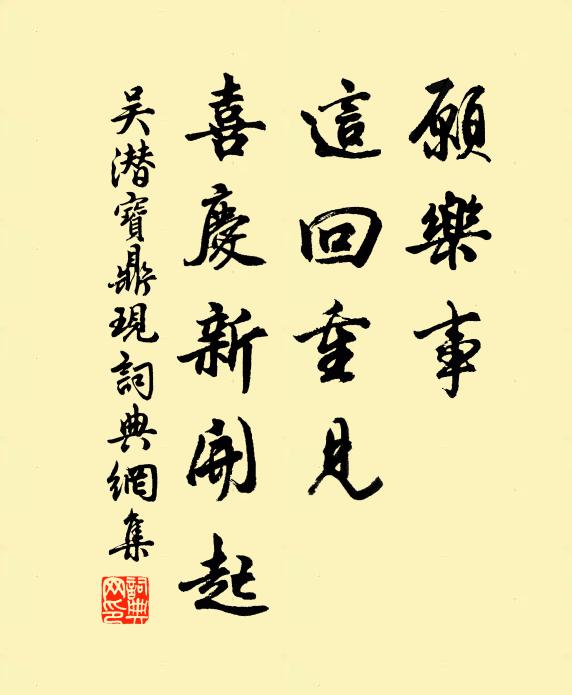 願樂事
這回重見
喜慶新開起
吳潛寶鼎現詞典網集
詞典網印